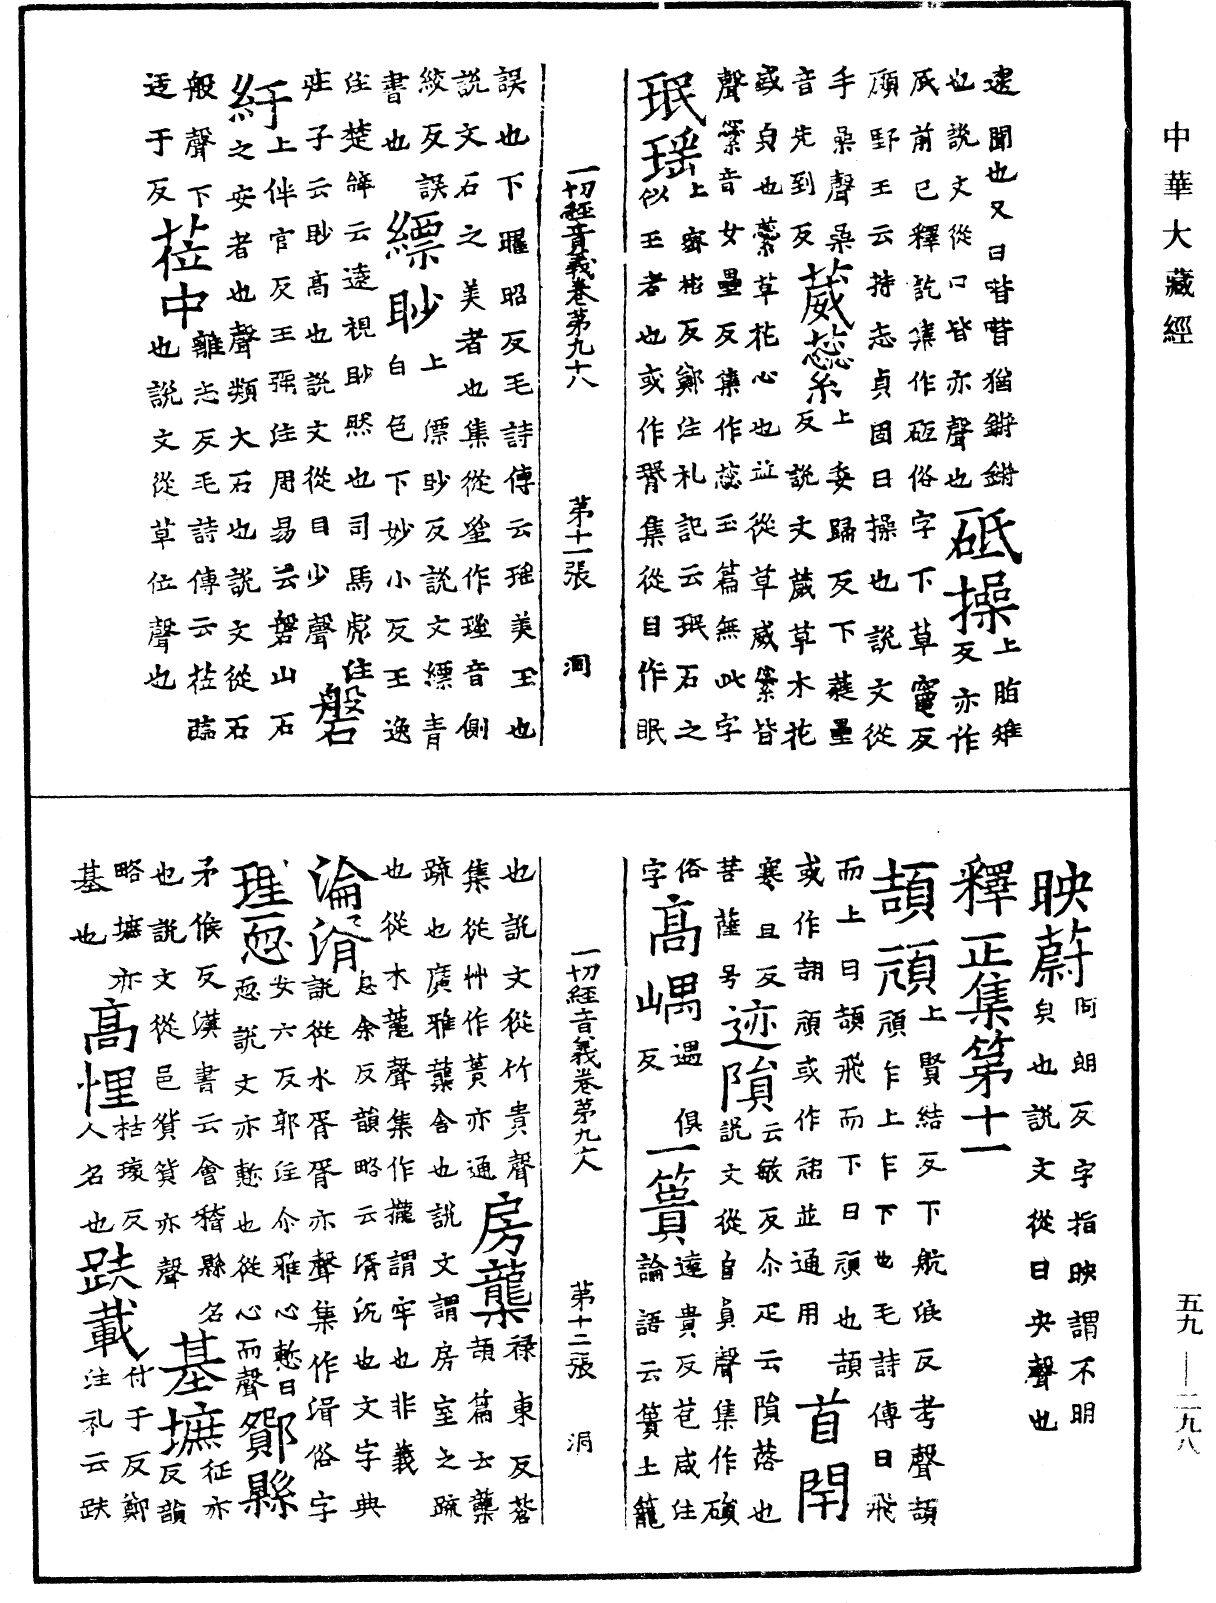 中華大藏經
逮聞也又曰喈喈猶鏘鏘
也說文從口皆亦聲也砥操上脂雉
反前已釋訖集作砥俗字下草竈反
顧野王云持志貞固曰操也說文從
手喿聲喿
音先到反葳蕊上委歸反下蕤壘
反說文葳草木花
或貞也蘂草花心也竝從草威縈皆
聲縈音女壘反集作蕊玉篇無此字
珉瑶上密彬反鄭注礼記云珉石之
似玉者也或作瑉集從目作眠
一切經音義卷第九十八 第十一張 洞
誤也下曜昭反毛詩傳云瑶美玉也
說文石之美者也集從䍃作瑶音側
絞反誤縹眇上漂眇反說文縹青
書也白色下妙小反王逸
注楚辭云遠視眇然也司馬彪注
莊子云眇髙也說文從目少聲磐
紆上伴官反王弼注周易云磐山石
之安者也聲類大石也說文從石
般聲下蒞中離志反毛詩傳云蒞臨
迃于反也說文從草位聲也
映蔚阿朗反字指映謂不明
皃也說文從日央聲也
釋正集第十一
頡頏上賢結反下航浪反考聲頡
頏乍上乍下也毛詩傳曰飛
而上曰頡飛而下曰頏也頡
或作翓頏或作䘕並通用首開
寒旦反迹隕云敏反尒疋云隕落也
菩薩号說文從𨸏員聲集作磒
俗遇俱一簣逵貴反苞咸注
字髙嵎反論語云簣土籠
一切經音義卷第九十八 第十二張 洞
也說文從竹貴聲房櫳祿東反蒼
集從艸作蕢亦通頡篇云櫳
疏也廣雅櫳舍也說文謂房室之疏
也從木龍聲集作攏謂牢也非義
淪湑息余反韻略云湑沉也文字典
說從水胥胥亦聲集作湑俗字
理恧女六反郭注尒雅心慙曰
恧說文亦慙也從心而聲鄮縣
矛候反漢書云會稽縣名
也說文從邑貿貿亦聲基墌征亦
反韻
略墌亦髙悝枯瓌反跗載付于反鄭
基也人名也注礼云跗
五九—二九八